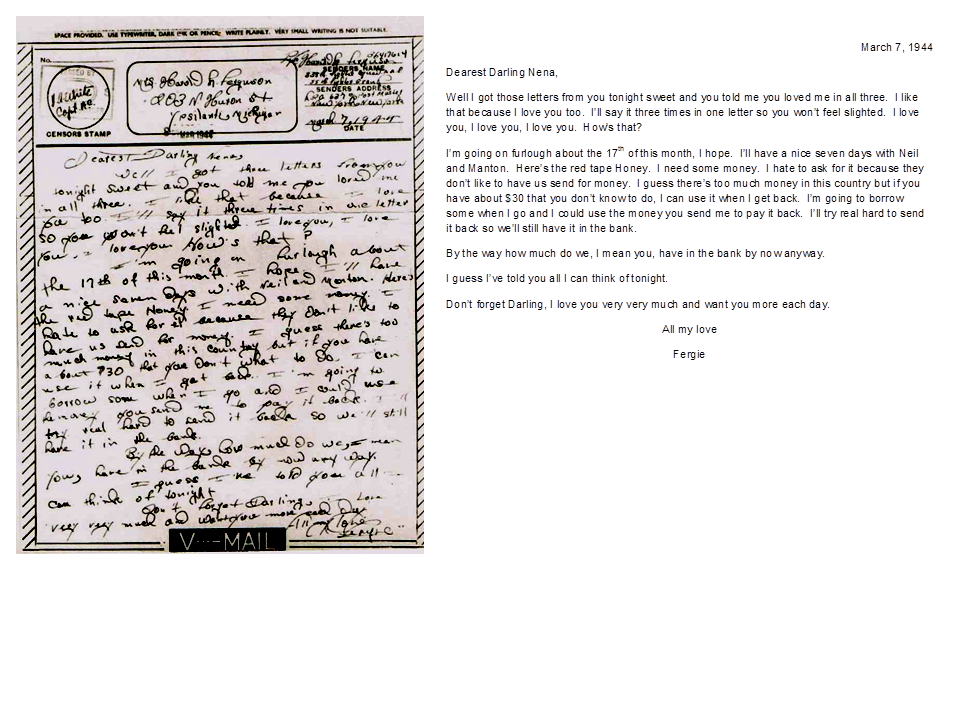 SPACE PROVIDED. USE TYPEWRITER, DARK INK OR PENCIL. WRITE PLAINLY. VERY SMALL WRITING IS NOT SUITABLE.
No.
CENSORS STAMP
Mrs Harold L. Ferguson
N Huron St
Ypsilanti Michigan
SENDERS NAME
SENDERS ADDRESS
DATE
Dearest Darling nena
We'll I got those letters from you
tonight sweet and you told me you loved me
in all three. I like that because I love
you too I'll say it three times in one letter
so you won't feel slighted. I love you, I love
you. I love you How's that?
I'm going on furlough about
the 17th of this month I hope. I'll have
a nice seven days with Neil and Manton. Here's
the red tape Honey I need some money. I
hate to ask for it because they don't like to
have us send for money. I guess there's too
much money in this country but if you have
about $30 that you don't what to do. I can
use it when I get back. I'm going to
borrow some when I go and I could use
the money you send me to pay it back. I'll
try real hard to send it back so we'll still
have it in the bank.
By the way how much do we, I mean
you, have in the bank by now any way.
I guess I've told you all I
can think of tonight
Don't forget Darling, I love
very very much and want you more each day
All my love
Fergie
V···–MAIL
March 7, 1944
Dearest Darling Nena,
Well I got those letters from you tonight sweet and you told me you loved me in all three. I like
that because I love you too. I'll say it three times in one letter so you won't feel slighted. I love
you, I love you, I love you. How's that?
I'm going on furlough about the 17th of this month, I hope. I'll have a nice seven days with Neil
and Manton. Here's the red tape Honey. I need some money. I hate to ask for it because they
don't like to have us send for money. I guess there's too much money in this country but if you
have about $30 that you don't know to do, I can use it when I get back. I'm going to borrow
some when I go and I could use the money you send me to pay it back. I'll try real hard to send
it back so we'll still have it in the bank.
By the way how much do we, I mean you, have in the bank by now anyway.
I guess I've told you all I can think of tonight.
Don't forget Darling, I love you very very much and want you more each day.
All my love
Fergie